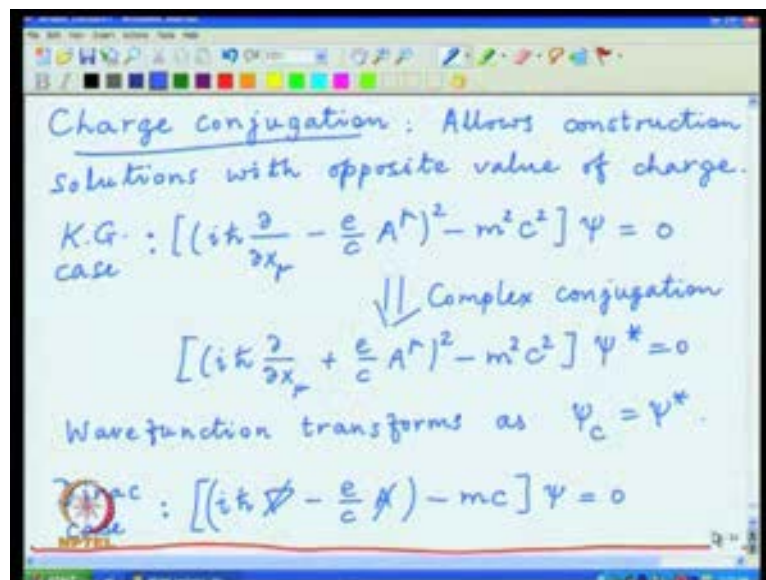 Charge conjugation : Allows construction
solutions with opposite value of charge.
K.G. : [(iℏ ∂/∂x_μ − e/c A^μ)² − m²c²] Ψ = 0
case
⇓ Complex conjugation
[(iℏ ∂/∂x_μ + e/c A^μ)² − m²c²] Ψ* = 0
Wavefunction transforms as Ψ_c = Ψ*.
Dirac : [(iℏ ∇̸ − e/c A̸) − mc] Ψ = 0
case
NPTEL